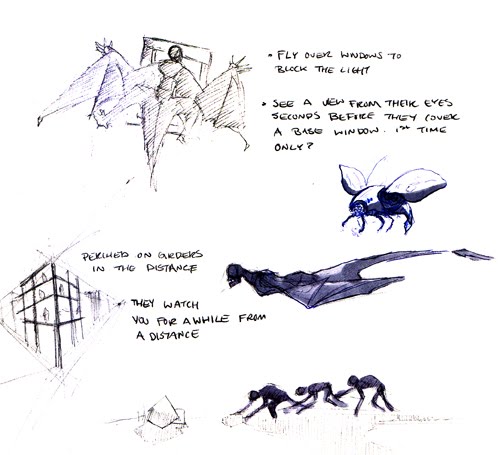 • FLY OVER WINDOWS TO
BLOCK THE LIGHT
• SEE A VEW FROM THEIR EYES
SECONDS BEFORE THEY COVER
A BASE WINDOW. 1ST TIME
ONLY?
PERCHED ON GIRDERS
IN THE DISTANCE
• THEY WATCH
YOU FOR A WHILE FROM
A DISTANCE